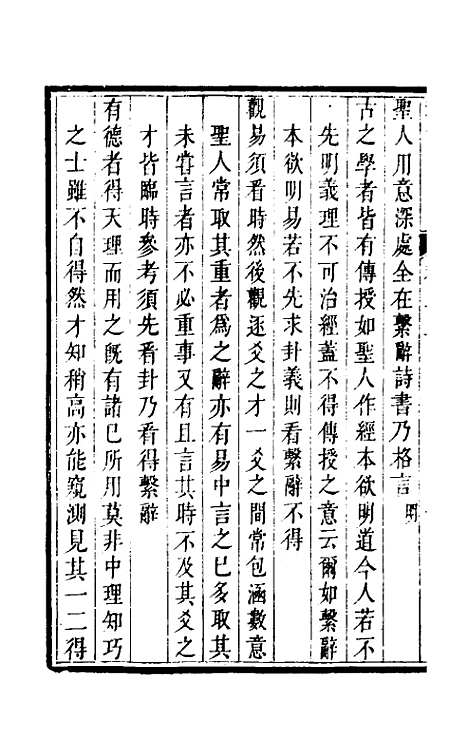 聖人用意深處全在繫辭詩書乃格言 明
古之學者皆有傳授如聖人作經本欲明道今人若不
先明義理不可治經蓋不得傳授之意云爾如繫辭
本欲明易若不先求卦義則看繫辭不得
觀易須看時然後觀逐爻之才一爻之間常包涵數意
聖人常取其重者爲之辭亦有易中言之已多取其
未嘗言者亦不必重事又有且言其時不及其爻之
才皆臨時參考須先看卦乃看得繫辭
有德者得天理而用之旣有諸已所用莫非中理知巧
之士雖不自得然才知稍高亦能窺測見其一二得